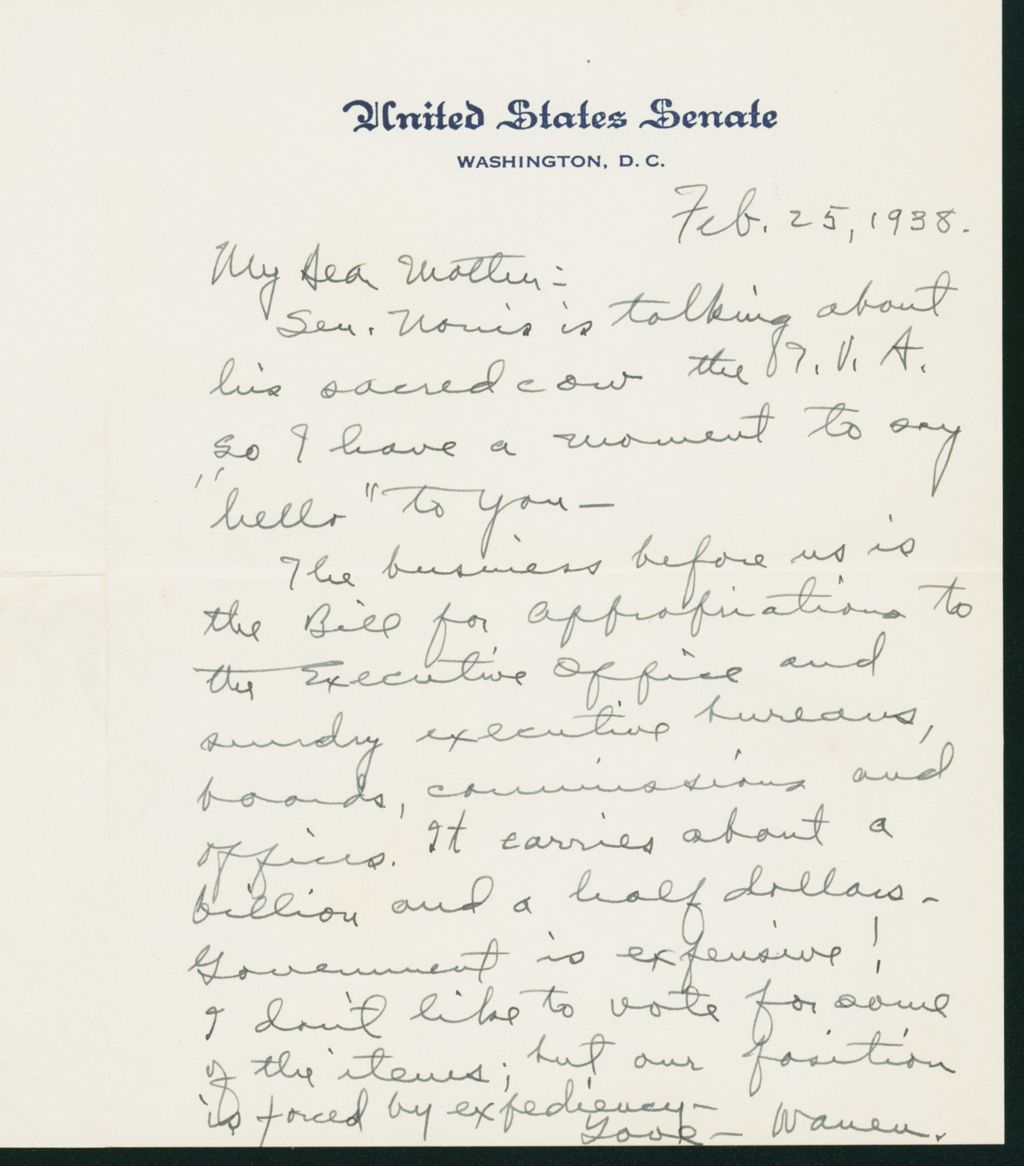 United States Senate
WASHINGTON, D. C.
Feb. 25, 1938.
My Dear Mother:
Sen. Norris is talking about
his sacred cow the T. V. A.
so I have a moment to say
"hello" to you—
The business before us is
the Bill for appropriations to
the Executive Office and
sundry executive bureaus,
boards, commissions and
offices. It carries about a
billion and a half dollars-
Government is expensive!
I don't like to vote for some
of the items; but our position
is forced by expediency-
Love- Warren.